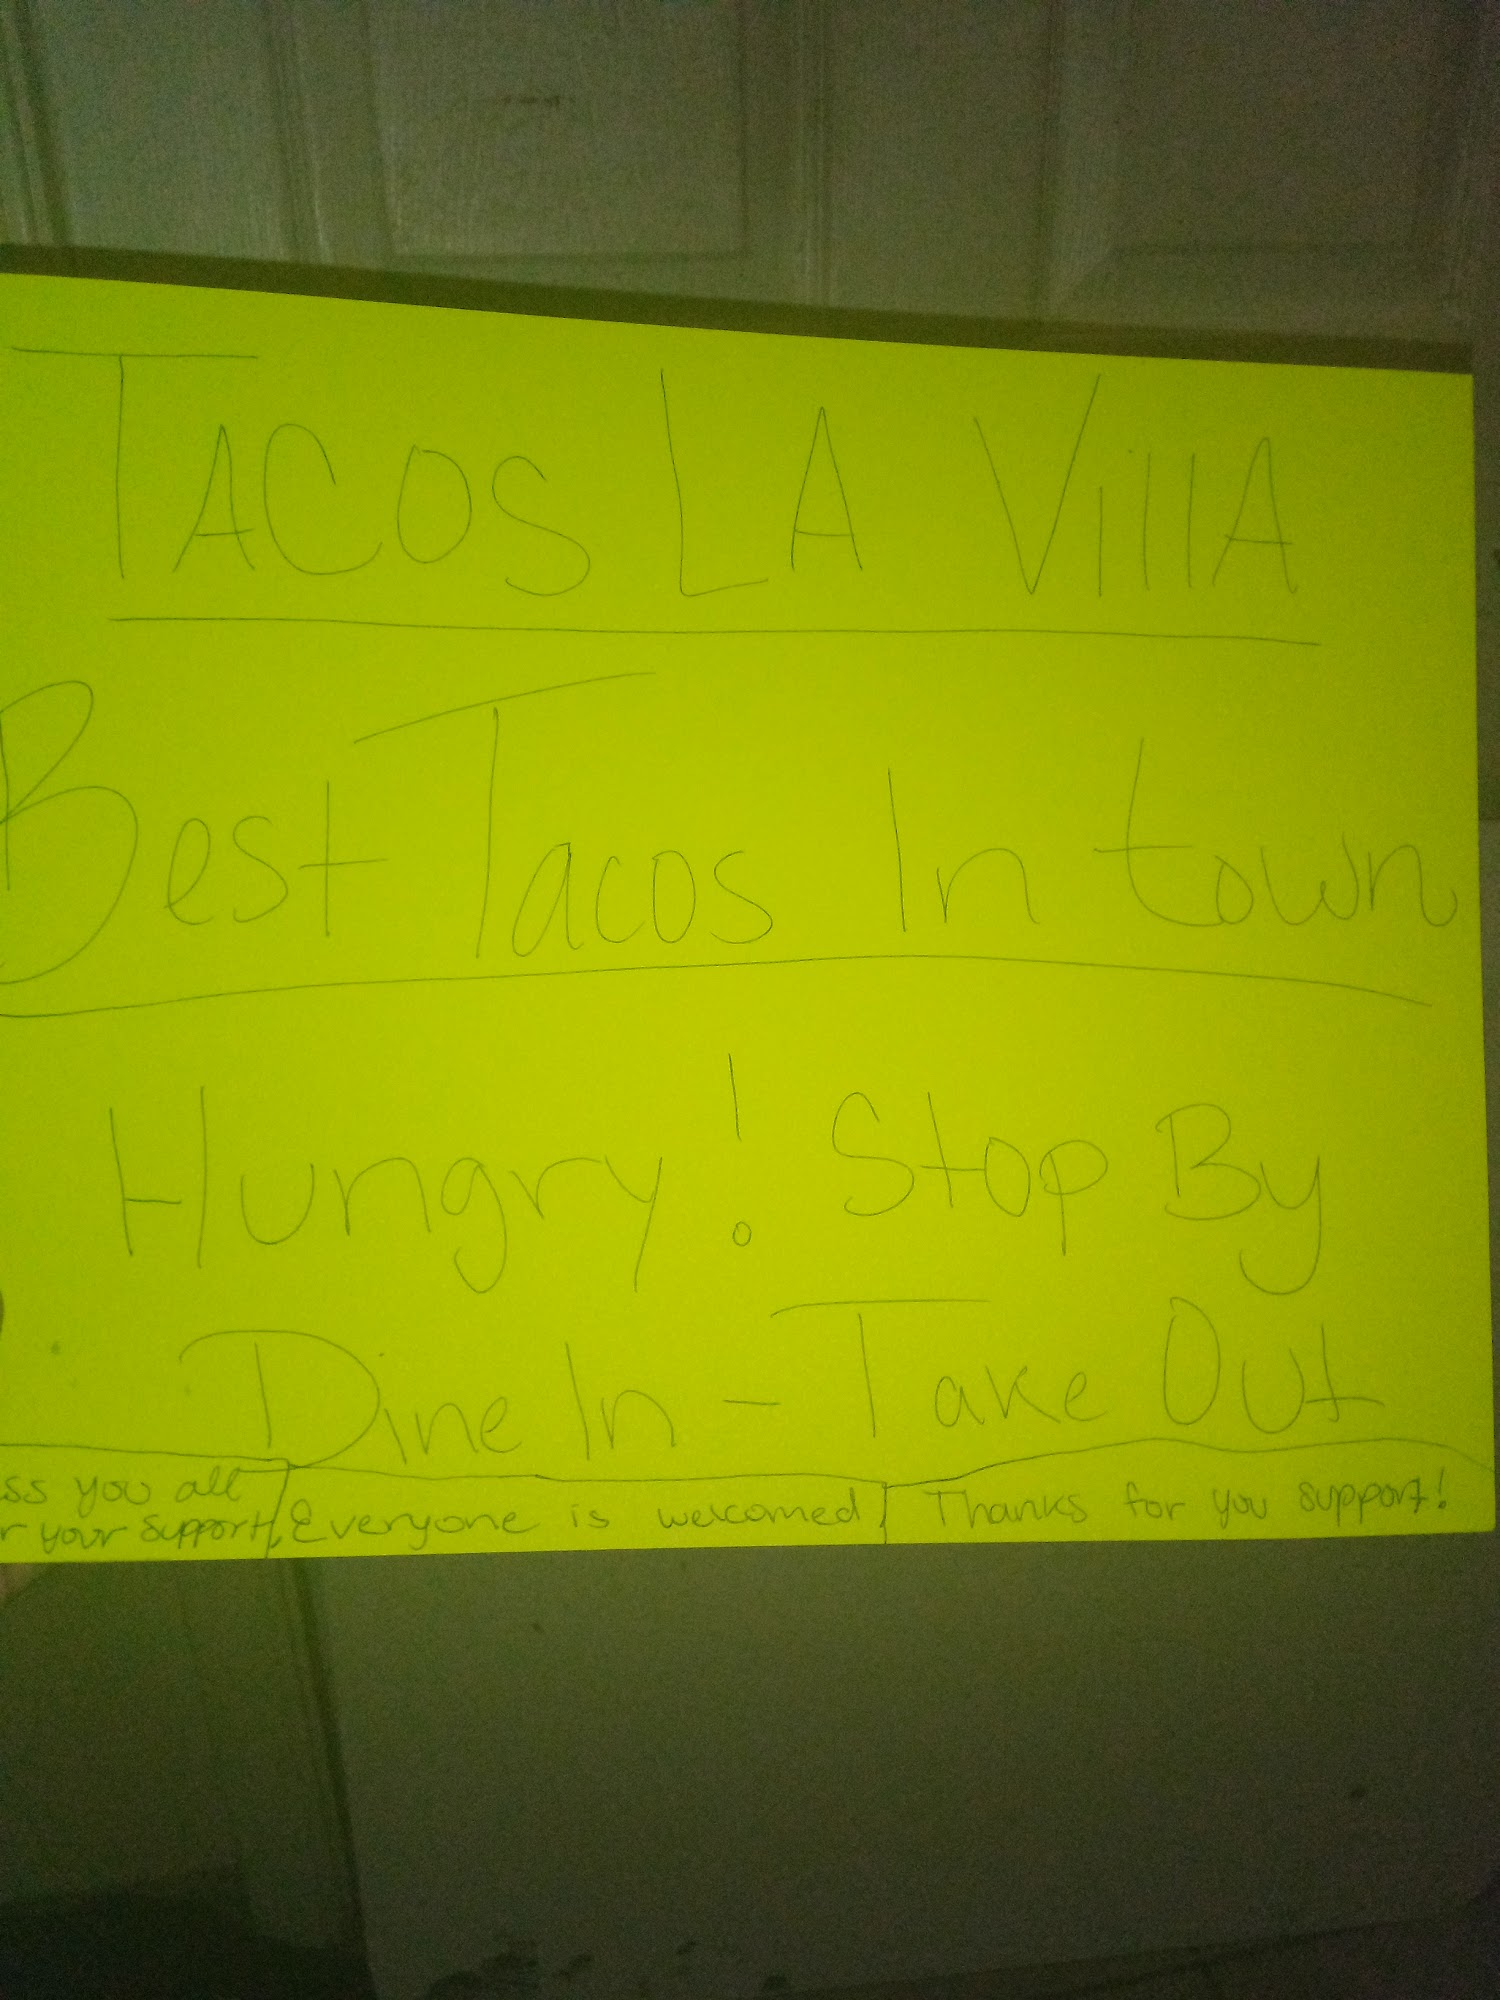 TACOS LA VillA
Best Tacos In town
Hungry! Stop By
Dine In - Take Out
ss you all
r your support, Everyone is welcomed Thanks for you support!